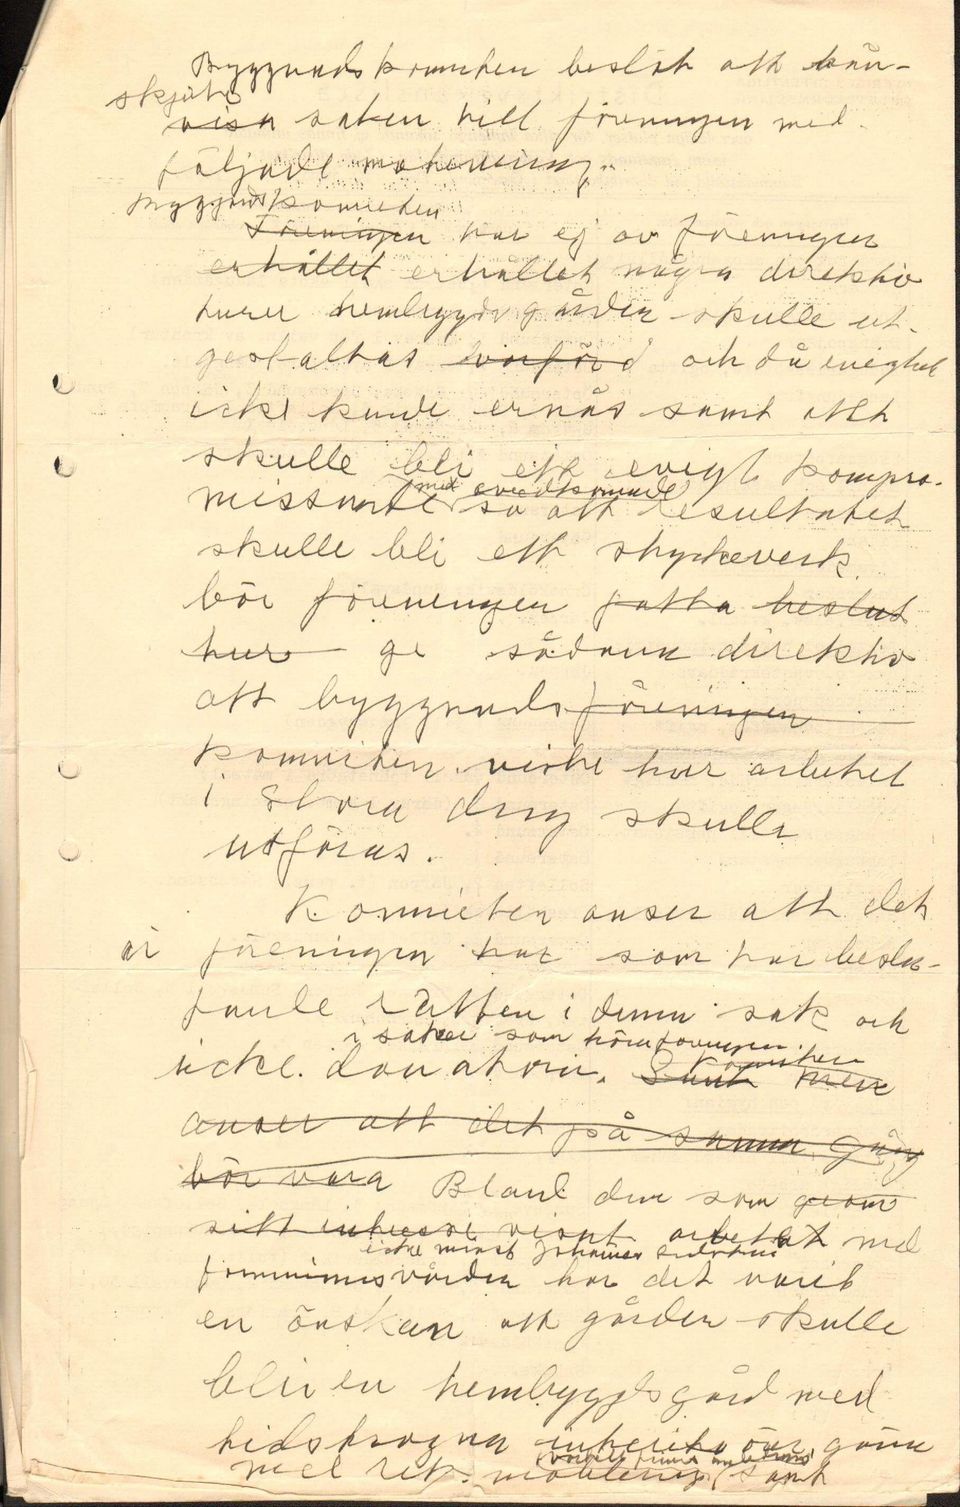 Byggnadskommiten beslöt att hän-
skjuta
visa saken till föreningen med
följade motivering.
Byggnadskomiteen
Föreningen har ej av föreningen
erhållet erhållet några direktiv
hurer hembygdsgården skulle ut-
gestaltas varför och då enighet
icke kunde ernås samt att
skulle bli ett evigt kompro-
med ovidkomande
missande så att resultatet
skulle bli ett styckeverk
bör föreningen fatta beslut
hur ge sådana direktiv
att byggnadsföreningen
kommiten visste hur arbetet
i stora drag skulle
utföras.
Kommieten anser att det
är föreningen har som har beslu-
tande rätten i denna sak och
i saker som rör föreningen
icke donatorn. Samt men
Komiteen
anser att det på samma gång
bör vara Bland dem som genom
sitt intresse visat arbetat med
icke minst Johannes
fornminnesvården har det varit
en önskan att gården skulle
bli en hembygdsgård med
tidstrogna interiör
med samt